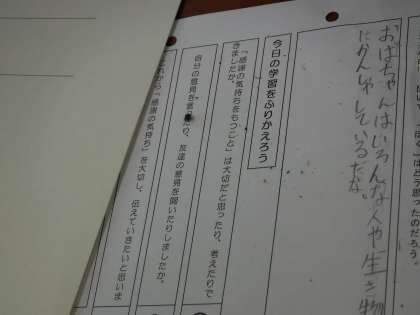 「ぼく」はどう思ったのだろう。
おばちゃんはいろんな人や生き物
にかんしゃしているんだな
今日の学習をふりかえろう
「感謝の気持ちをもつこと」は大切だと思ったり、考えたりで
きましたか。
自分の意見を言ったり、友達の意見を聞いたりしましたか。
これから「感謝の気持ち」を大切にし、伝えていきたいと思いま